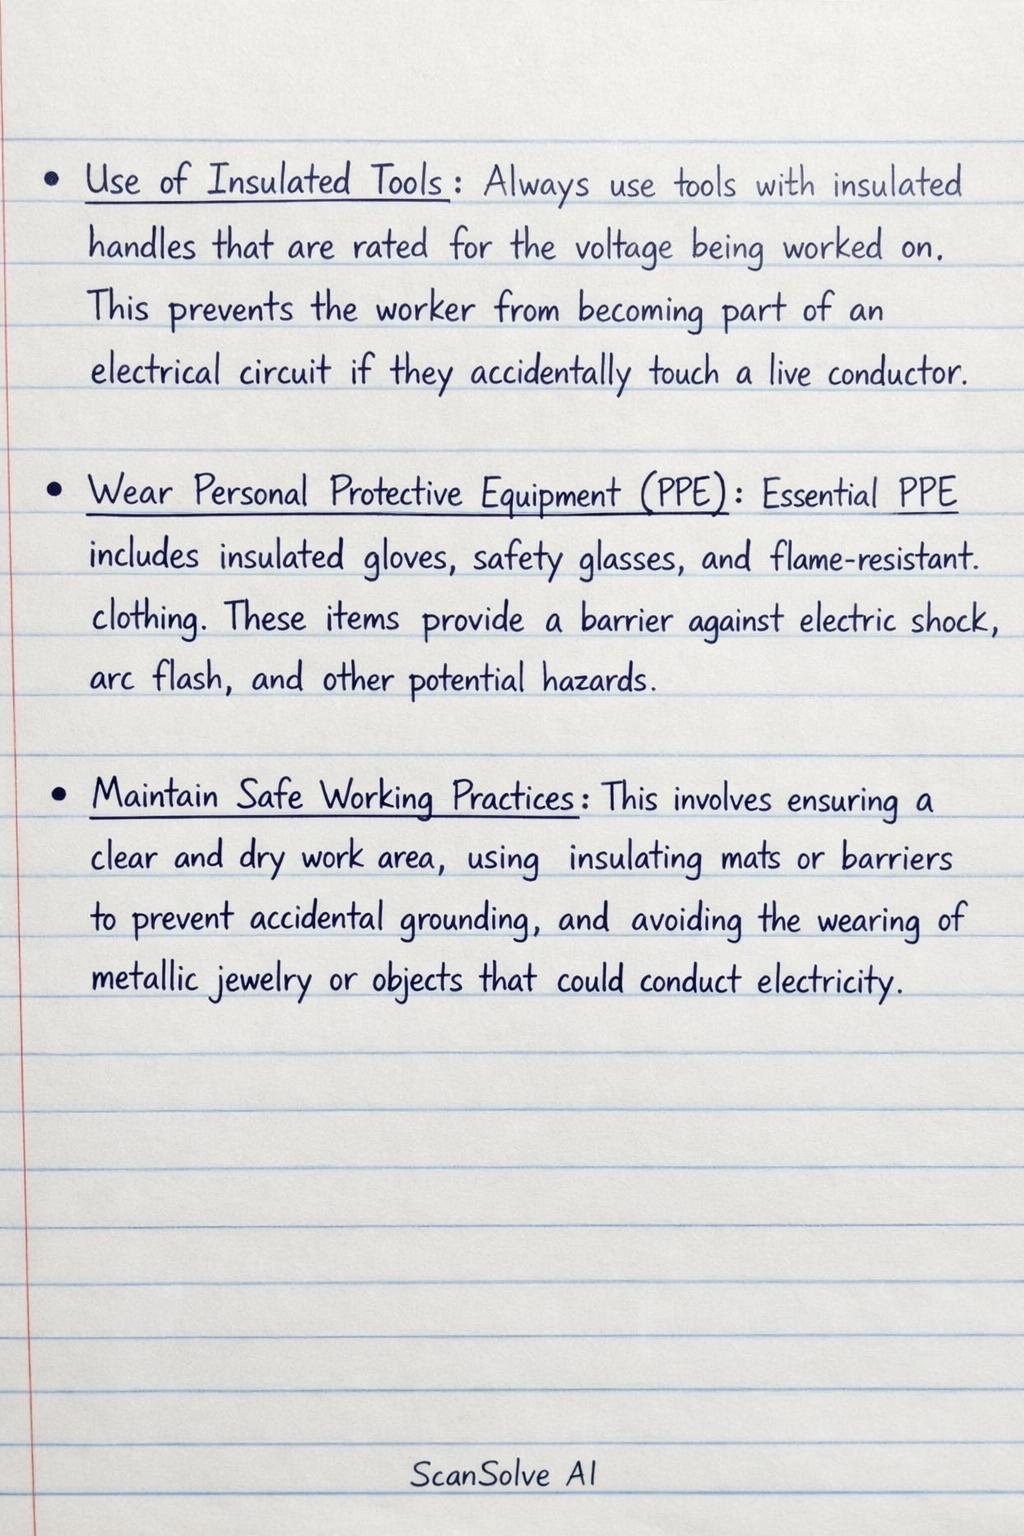 • Use of Insulated Tools: Always use tools with insulated
handles that are rated for the voltage being worked on.
This prevents the worker from becoming part of an
electrical circuit if they accidentally touch a live conductor.
• Wear Personal Protective Equipment (PPE): Essential PPE
includes insulated gloves, safety glasses, and flame-resistant.
clothing. These items provide a barrier against electric shock,
arc flash, and other potential hazards.
• Maintain Safe Working Practices: This involves ensuring a
clear and dry work area, using insulating mats or barriers
to prevent accidental grounding, and avoiding the wearing of
metallic jewelry or objects that could conduct electricity.
ScanSolve AI